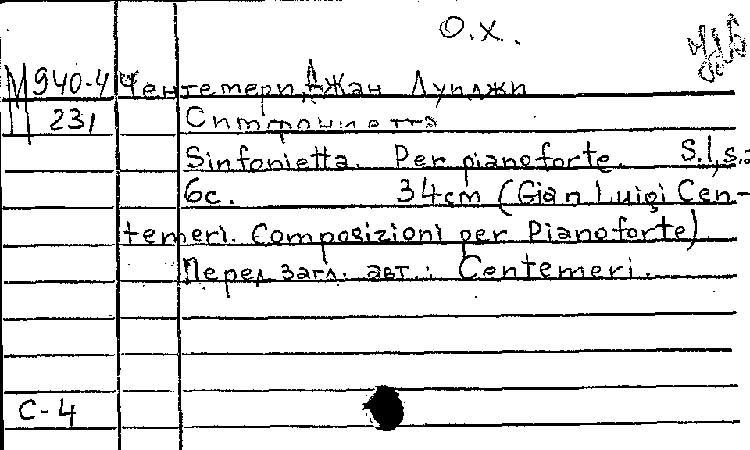 О.Х.
М 940-4 Чентемери, Джан Луиджи
231
Sinfonietta. Per pianoforte. S.l,s.:
6c. 34cm (Gian Luigi Cen-
temeri. Composizioni per Pianoforte)
Перед загл. авт.: Centemeri.
С-4